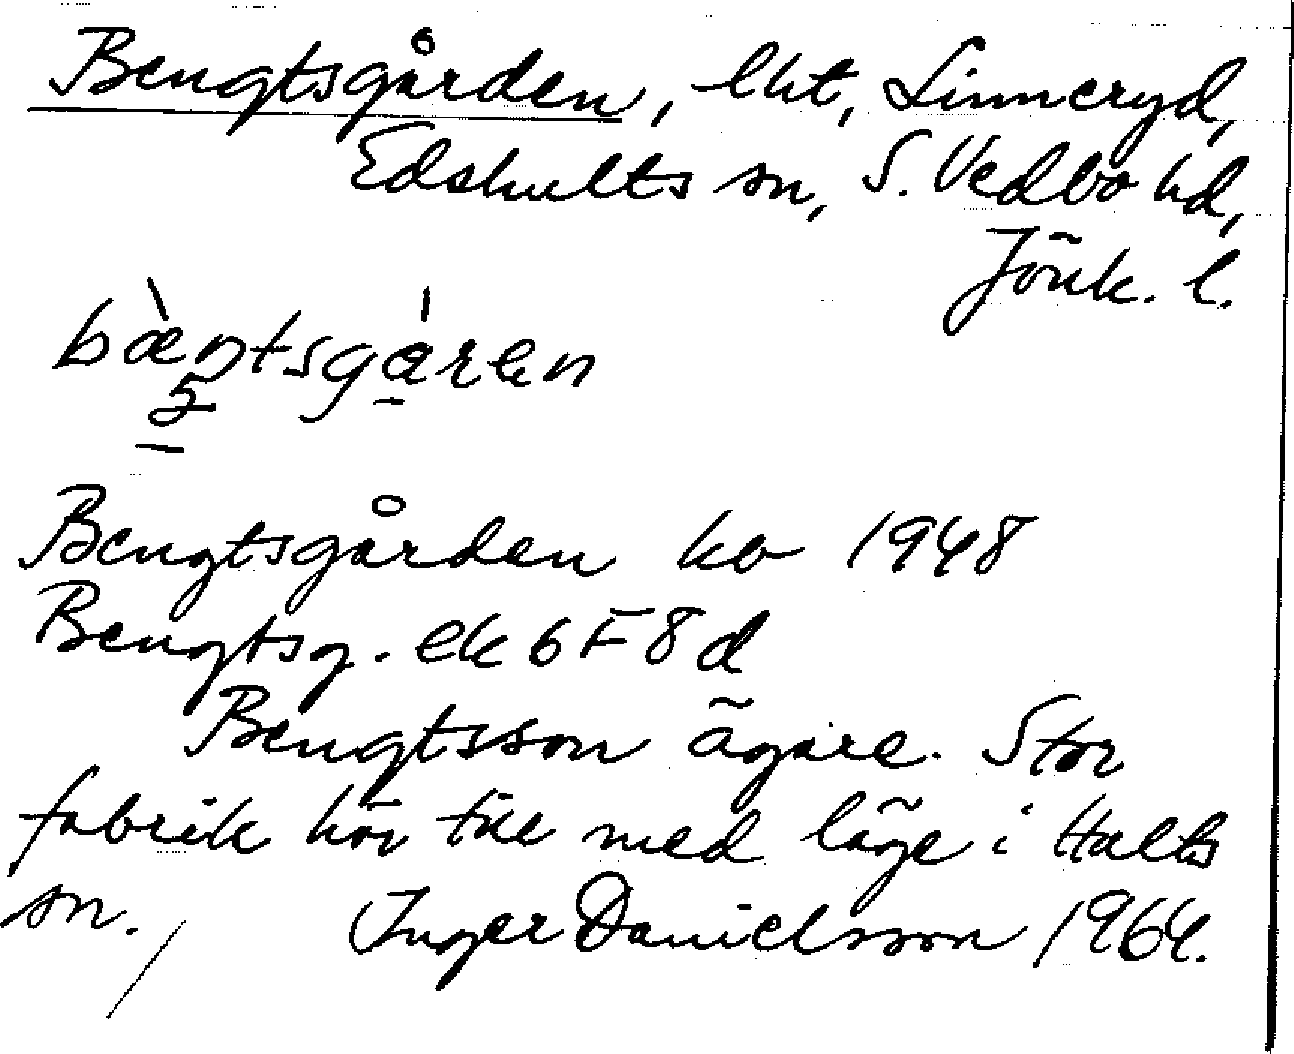 Bengtsgården, lht, Linneryd,
Edshults sn, S. Vedbo hd,
Jönk. l.
bæ̀ŋtsgɑ̀ren
5
Bengtsgården ko 1948
Bengtsg. ek 6 F 8 d
Bengtsson ägare. Stor
fabrik hör till med läge i Hults
sn. Inger Danielsson 1964.